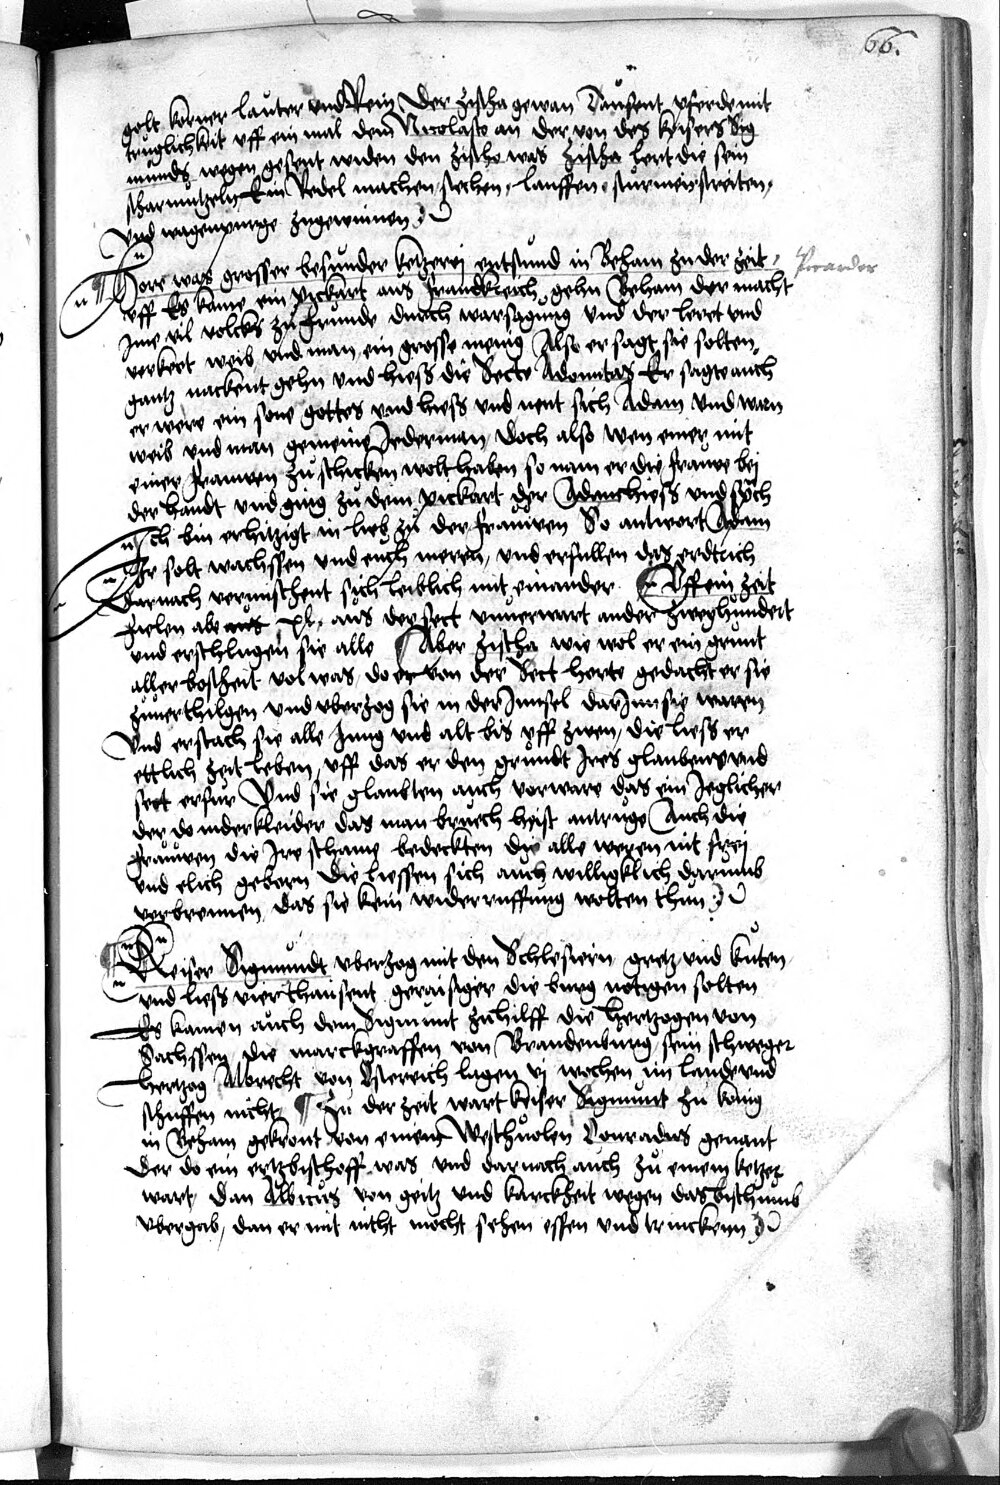 66.
golt korner lauter und Rein Der Zischa gewan Tausent pferde mit
truglichkeit uff ein mal dem Nicolasco an der von des keisers Sig
munds wegen gesent widen den Zischo was Zischa lert die sein
scharmutzeln Ein Redel machen, stechen, lauffen, sturmen streiten,
Und wagenpurge zugewinnen
Hore was grosser besunder ketzerei entstund in Beham zu der zeit,
Picarder
uff Es kame ein pickart aus franckreich gehn Beham der macht
Ime vil volcks zu frunde durch warsagung und der leret und
verkert weib und man ein grosse menig Also er sagt sie solten
gantz nackent gehn und hiess die Secte Adonitas Er sagte auch
er were ein sone gottes und hiess und nent sich Adam und warn
weib und man gemeine Jederman, doch also wen einer mit
einer frauwen zu schicken wolt haben so nam er die frauwe bei
der handt und ging zu dem pickart der Adam hiess und sprch
Ich bin erhitzigt in lieb zu der frauwen So antwort Adam
Ir solt wachssen und euch meren, und erfullen das erdtrich
Darnach vermischent sich leiblich mit einander Uff ein zeit
zielen abe aus xl, aus der sect unuerwart ander zweyhundert
und erschlugen sie alle Aber Zischa wie wol er ein grunt
aller bosheit vol was, do er von der Sect horte gedacht er sie
zuuerthilgen und uberzog sie in der Innsel darInn sie waren
Und erstach sie alle Jung und alt bis uff zwen, die liess er
ettlich zeit leben, uff das er den grundt Jres glaubens und
sect erfur Und sie glaubten auch vorware das ein Jeglicher
der do niderkleider das man bruech heist antruge Auch die
frauwen die Jre schame bedeckten die alle weren nit frei
und elich geborn Die liessen sich auch williglich darumb
verbrennen das sie kein widerruffung wolten thun
Keiser Sigmundt uberzog mit den Schlesiern gretz und kuten
und liess vierthausent geraisiger die burg notigen solten
Es kamen auch dem Sigmunt zuhilff die Hertzogen von
Sachssen die marckgraffen von Brandenburg sein schweger
hertzog Albrecht von Ostereich lagen vj wochen im lande und
schuffen nicht Zu der zeit wart keiser Sigmunt zu konig
in Beham gekront von einem Westhuolen Conradus genant
der do ein ertzbischoff was und darnach auch zu einem ketzer
wart, Dan Albicus von geitz und karckheit wegen das bisthumb
ubergab, dan er mit nicht mocht sehen essen und trincken